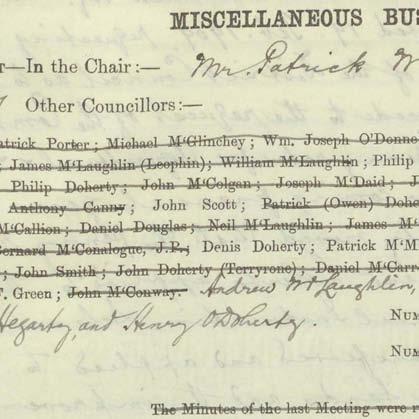 MISCELLANEOUS BUS
—In the Chair:— Mr. Patrick
Other Councillors:—
atrick Porter; Michael M'Glinchey; Wm. Joseph O'Donne
; James M'Laughlin (Leophin); William M'Laughlin; Philip
Philip Doherty; John M'Colgan; Joseph M'Daid; J
Anthony Canny; John Scott; Patrick (Owen) Dohe
M'Callion; Daniel Douglas; Neil M'Laughlin; James M'
ernard M'Conalogue, J.P.; Denis Doherty; Patrick M'M
; John Smith; John Doherty (Terryrone); Daniel M'Carr
F. Green; John M'Conway. Andrew McLaughlin,
Hegarty, and Henry O'Doherty.
NUM
NUM
The Minutes of the last Meeting were r